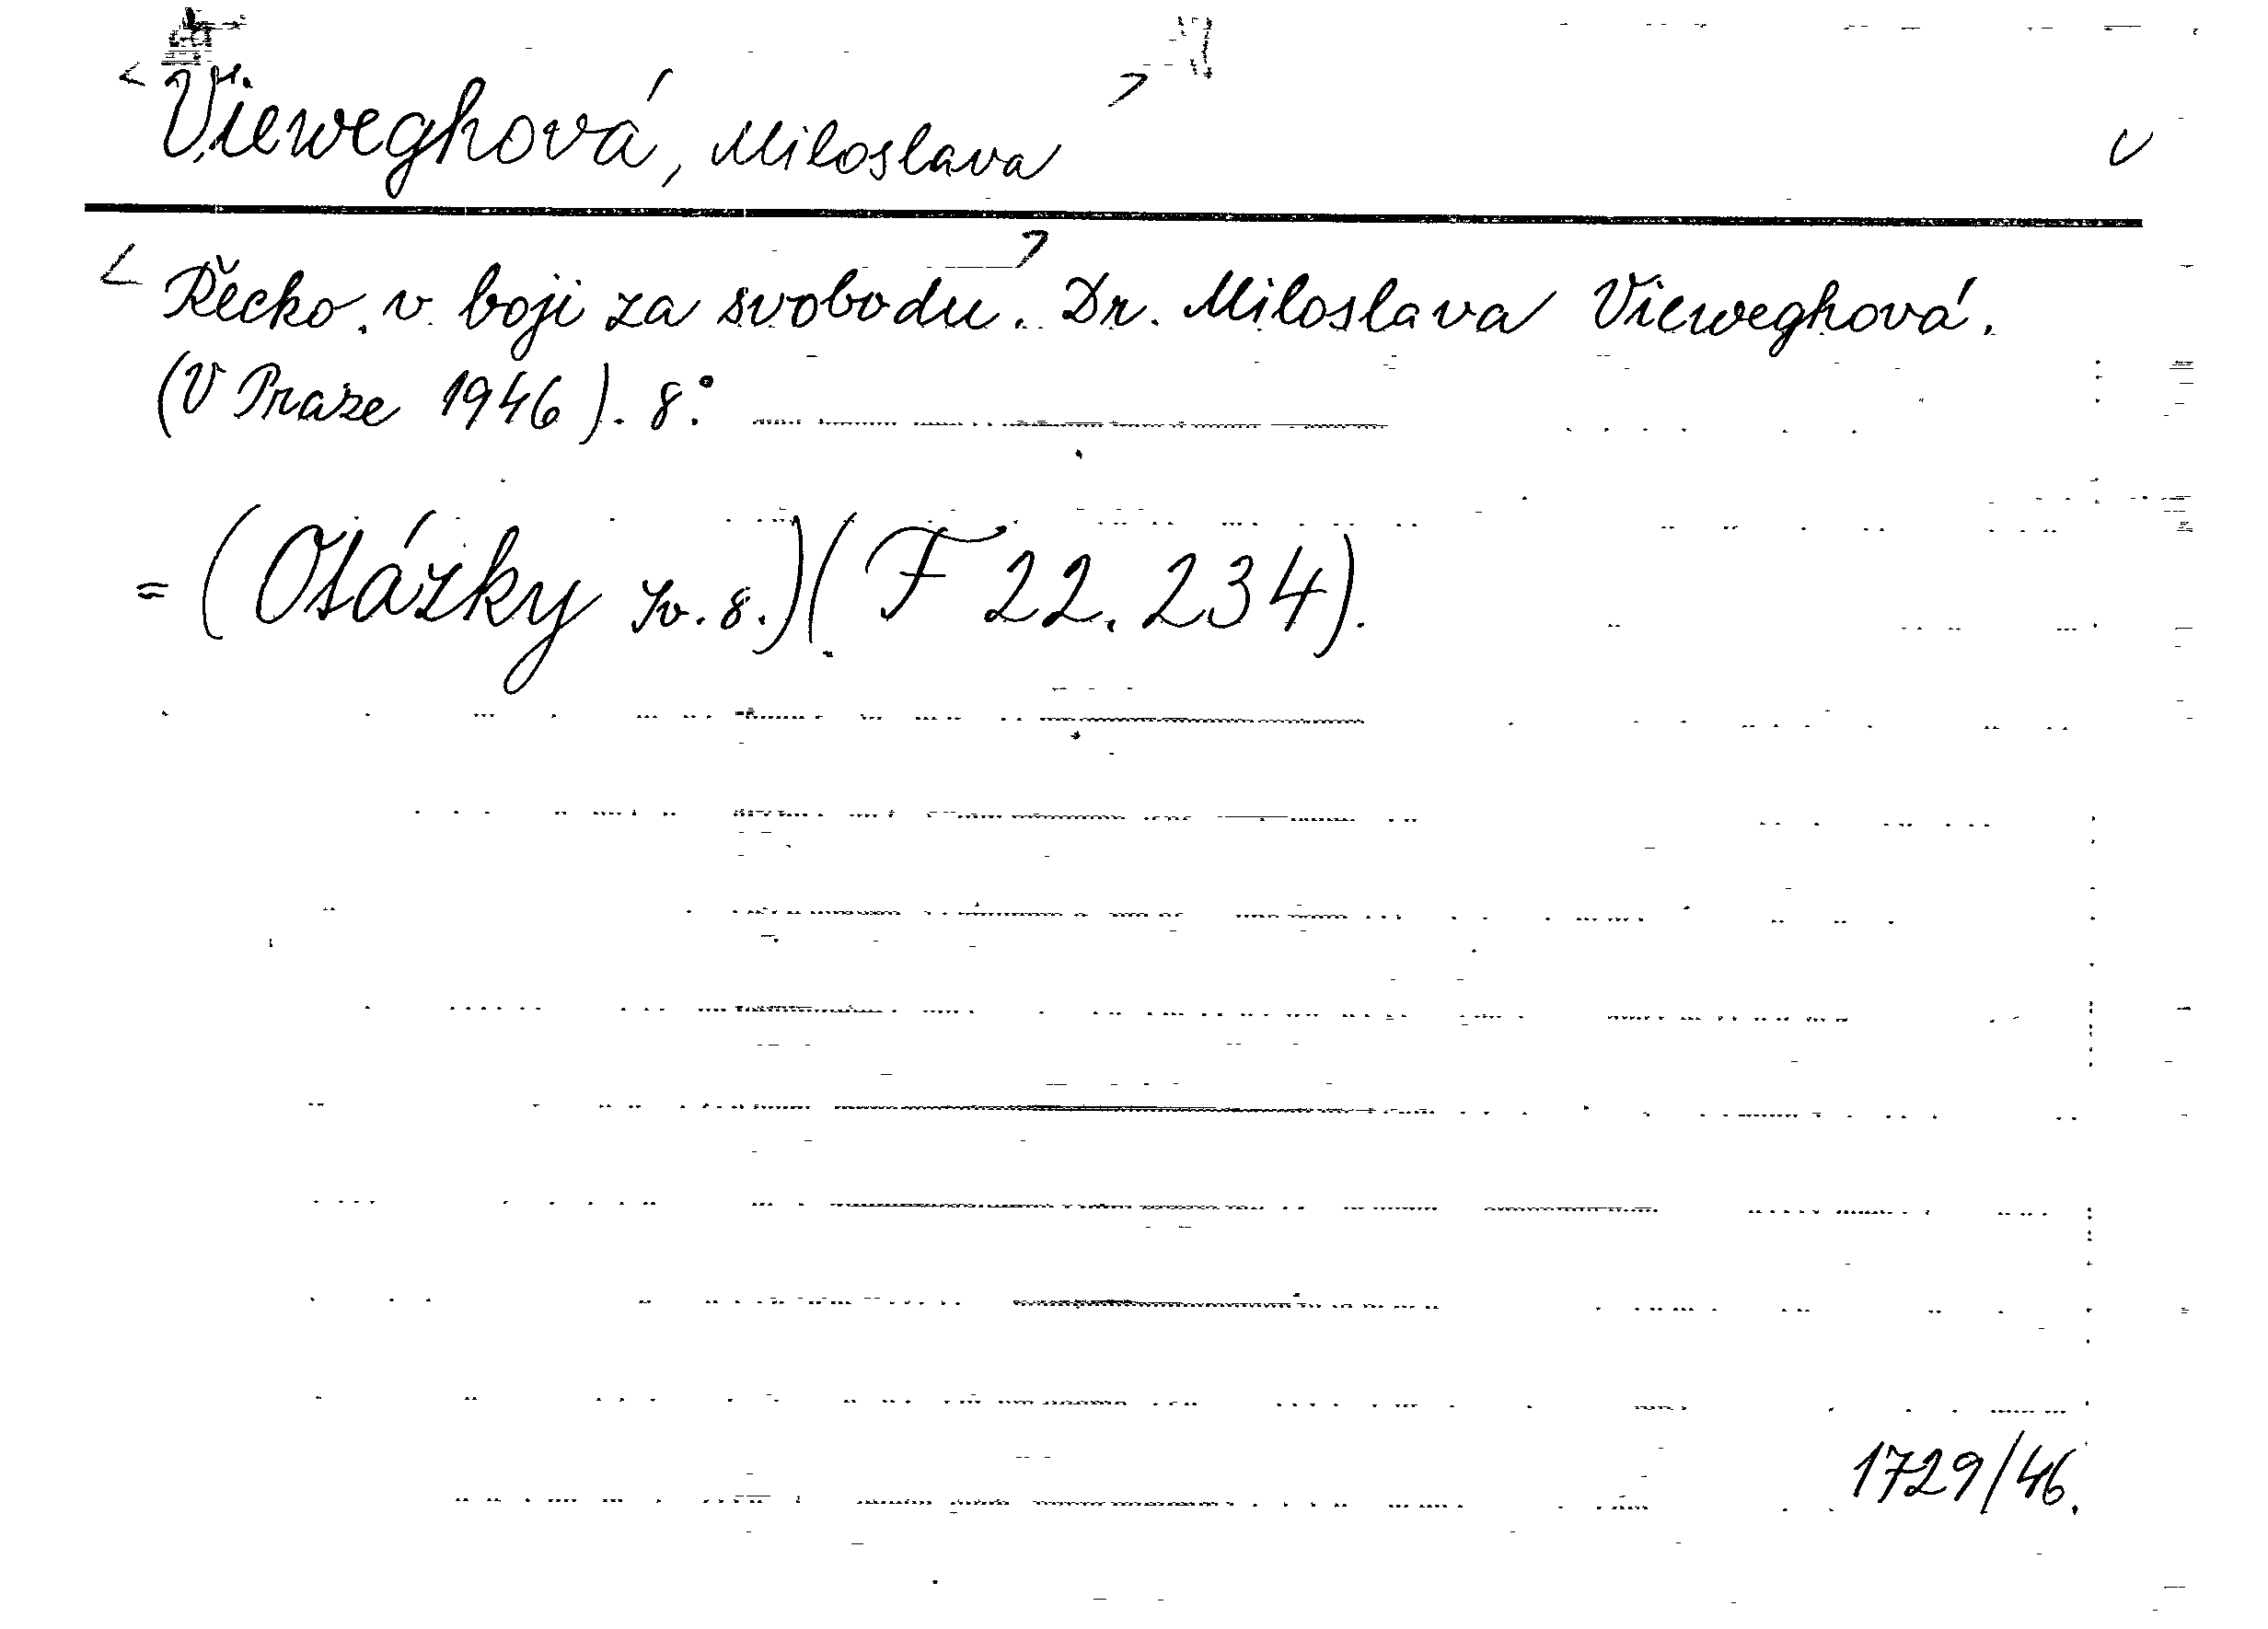 <Vieweghová, Miloslava>
<Řecko v boji za svobodu.> Dr. Miloslava Vieweghová.
(V Praze 1946). 8°.
= (Otázky sv. 8.)(F 22.234).
1729/46.